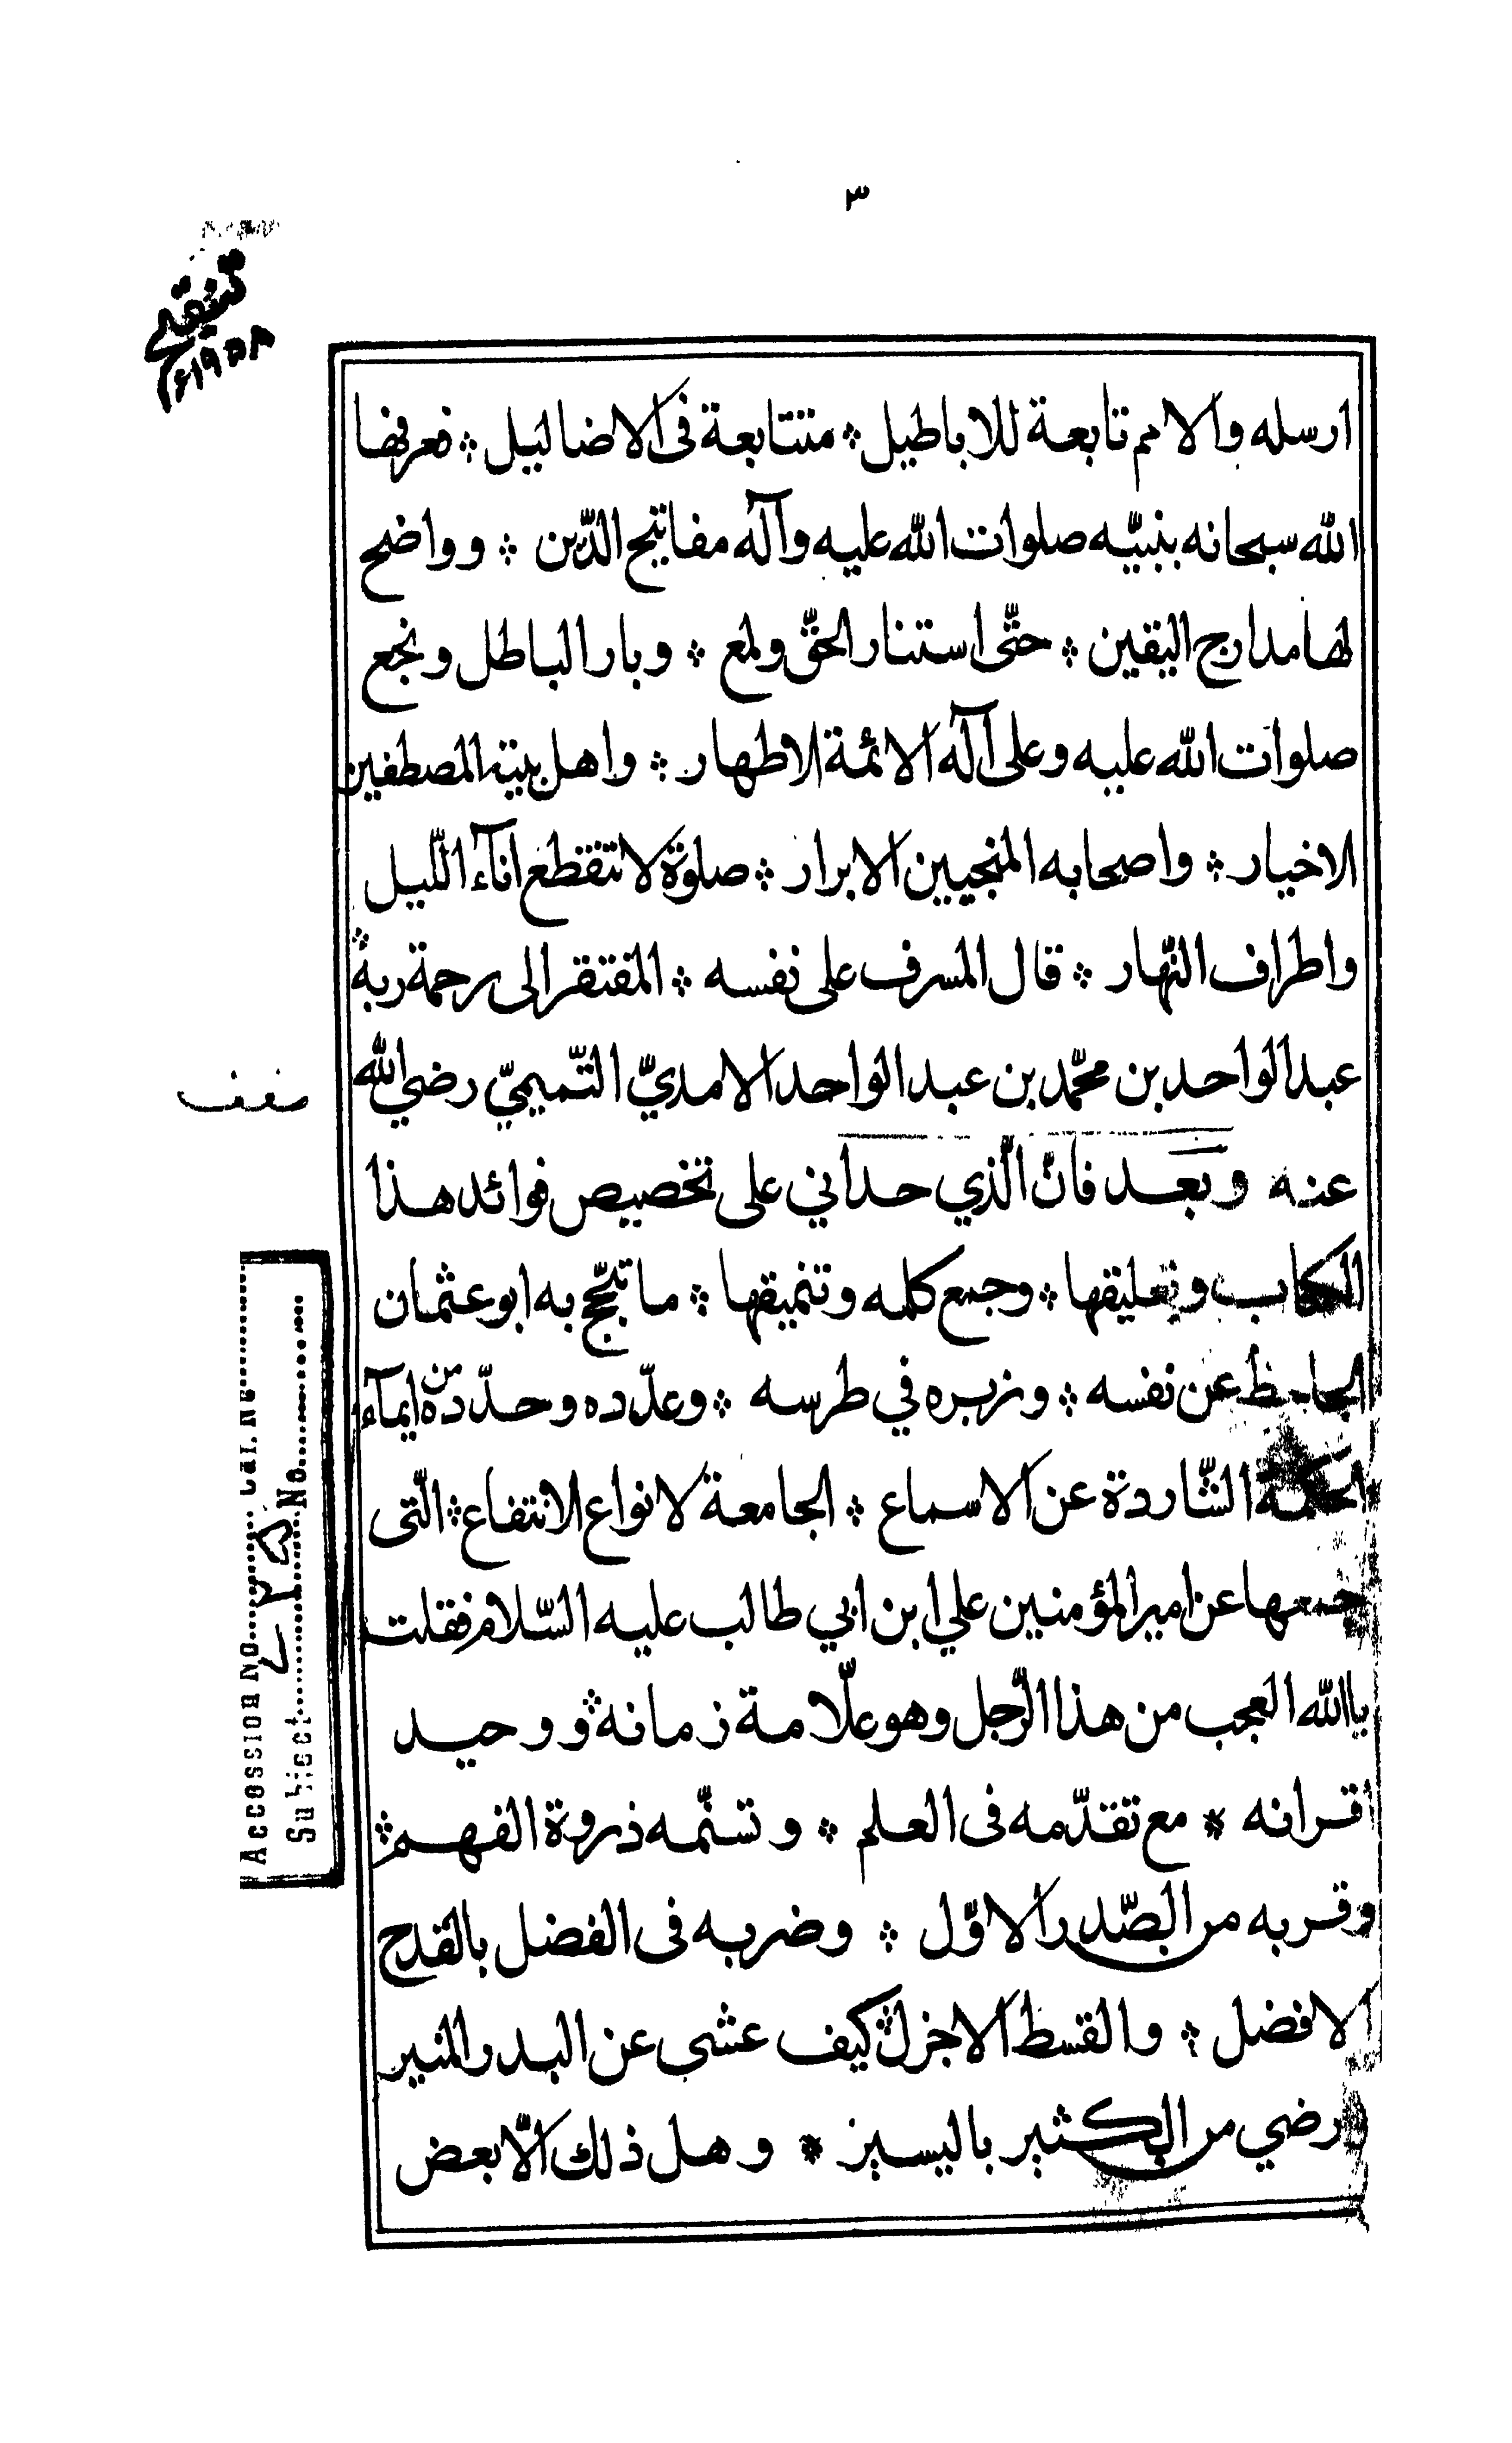 ٣
تنقيح
١٩٥٨ء
ارسله والامم تابعة للاباطيل ؞ متتابعة فى الاضاليل ؞ فعرفها
الله سبحانه بنبيّه صلوات الله عليه وآله مفاتيح الدّين ؞ وواضح
لها مدارج اليقين ؞ حتّى استنار الحقّ ولمع ؞ وبار الباطل ونجع
صلوات الله عليه وعلى آله الائمة الاطهار ؞ واهل بيته المصطفين
الاخيار ؞ واصحابه المنجبين الابرار ؞ صلوة لا تنقطع اناء اللّيل
واطراف النّهار ؞ قال المسرف على نفسه ؞ المفتقر الى رحمة ربه ؞
عبد الواحد بن محمّد بن عبد الواحد الامديّ التّميميّ رضي الله
مصنف
عنه وبعد فانّ الّذي حداني على تخصيص فوائد هذا
الكتاب وتعليقها ؞ وجمع كلمه وتنميقها ؞ ما تبجّح به ابو عثمان
الجاحظ عن نفسه ؞ وزبره في طرسه ؞ وعدّده وحدّده من ايماء
الحكمة الشّاردة عن الاسماع ؞ الجامعة لانواع الانتفاع ؞ الّتى
جمعها عن امير المؤمنين علي ابن ابي طالب عليه السّلام فقلت
يا الله العجب من هذا الرّجل وهو علّامة زمانه ؞ ووحيد
اقرانه * مع تقدّمه فى العلم ؞ وتسنّمه ذروة الفهم ؞
وقربه من الصّدر الاوّل ؞ وضربه فى الفضل بالقدح
الافضل ؞ والقسط الاجزل ؞ كيف عشى عن البدر المنير
ورضي من الكثير باليسير * وهل ذلك الّا بعض
Accession No........ Cat. No........
Subject........ No........